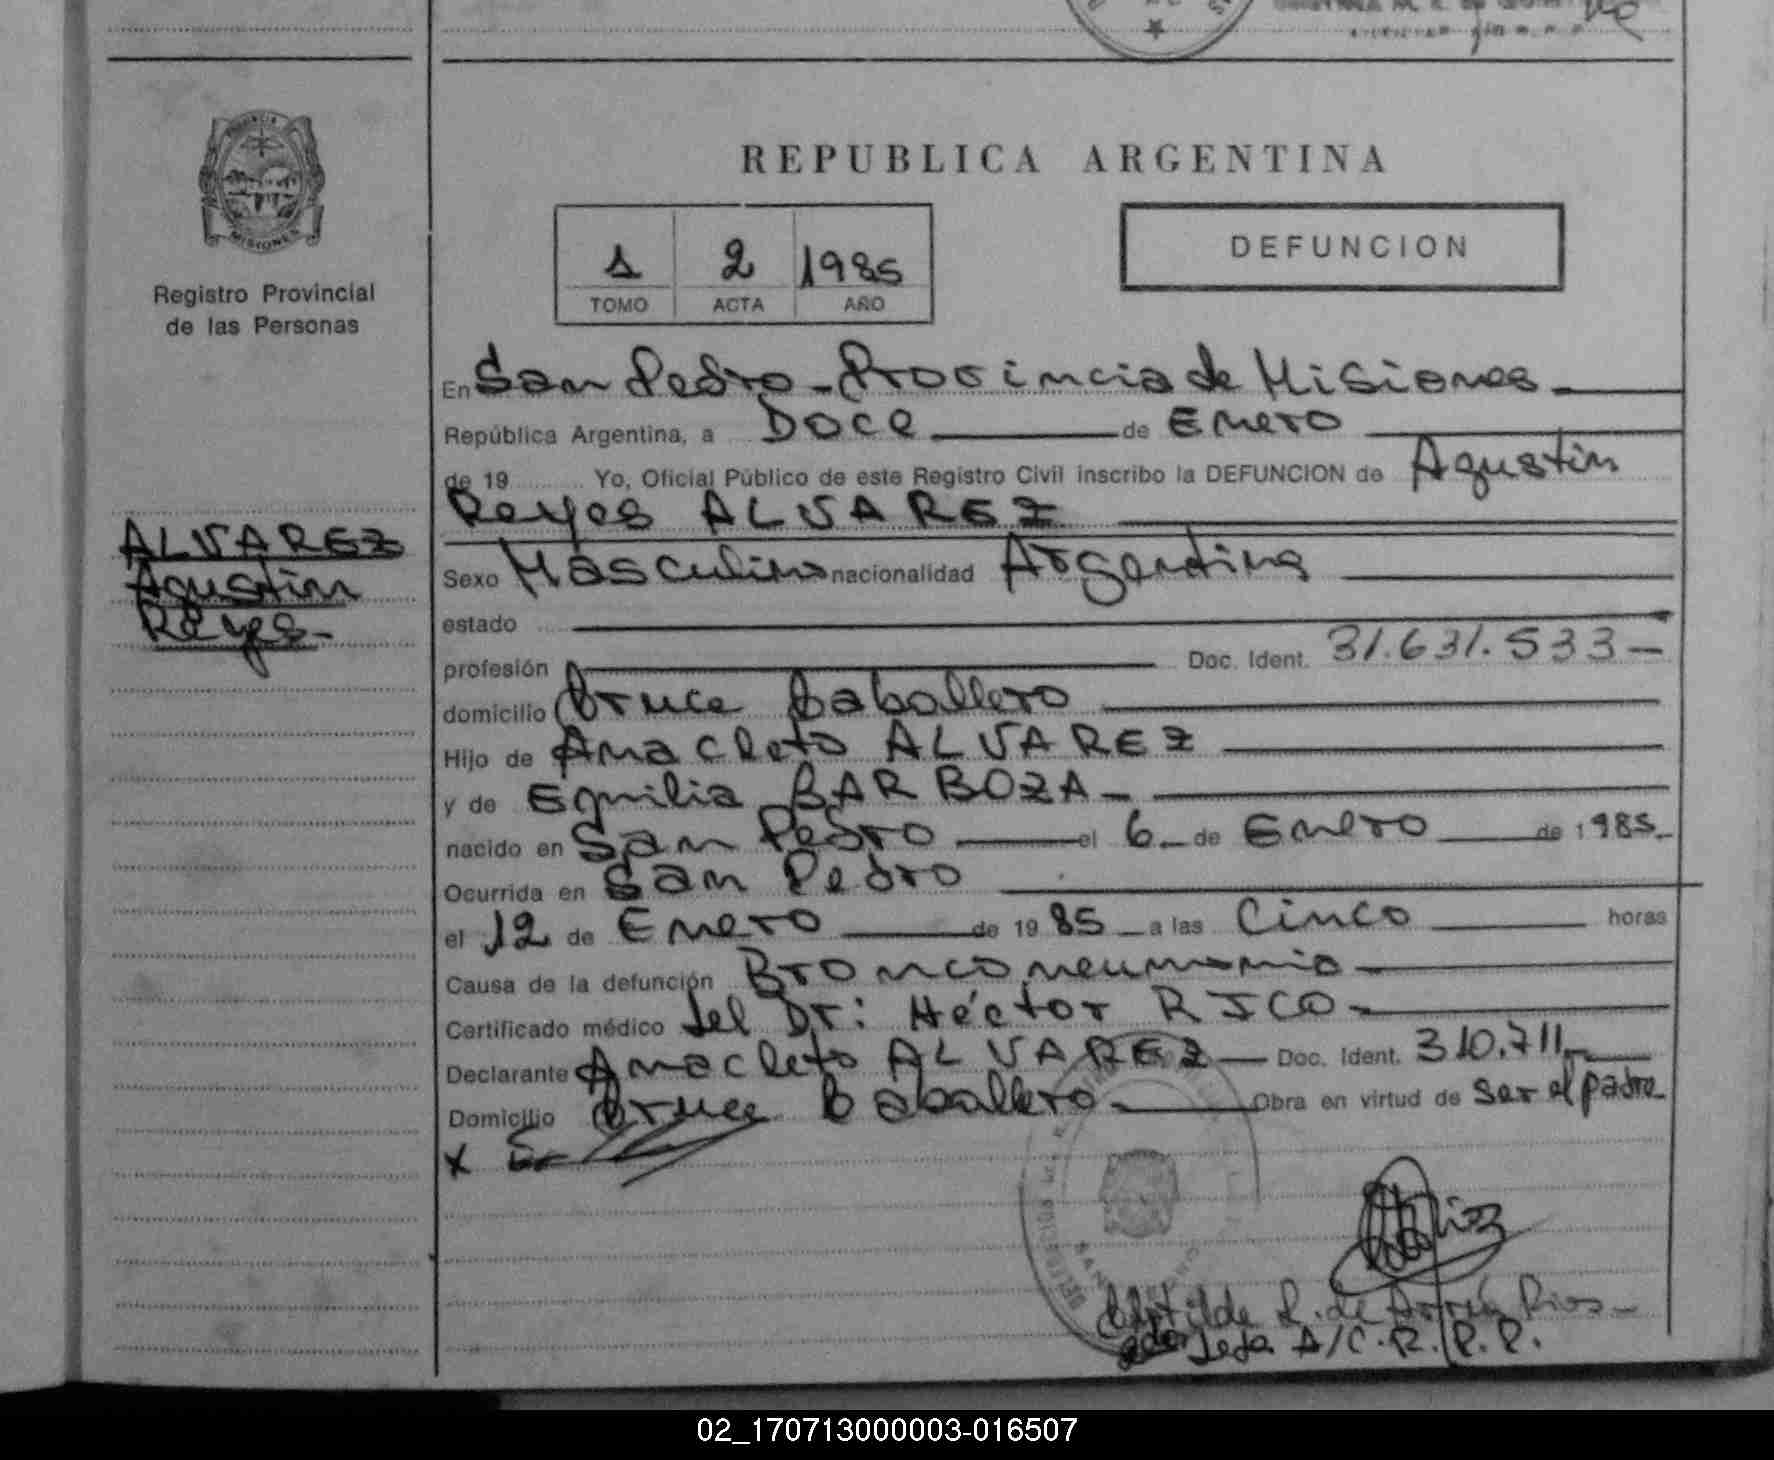 REPUBLICA ARGENTINA
PROVINCIA
MISIONES
Registro Provincial
de las Personas
1 2 1985
TOMO ACTA AÑO
DEFUNCION
ALVAREZ
Agustin
Reyes-
En San Pedro - Provincia de Misiones
República Argentina, a Doce de Enero
de 19 Yo, Oficial Público de este Registro Civil inscribo la DEFUNCION de Agustin
Reyes ALVAREZ
Sexo Masculino nacionalidad Argentina
estado
profesión Doc. Ident. 31.631.533-
domicilio Cruce Caballero
Hijo de Anacleto ALVAREZ
y de Emilia BARBOZA-
nacido en San Pedro el 6 de Enero de 1985-
Ocurrida en San Pedro
el 12 de Enero de 19 85 a las Cinco horas
Causa de la defunción Bronconeumonia
Certificado médico del Dr: Héctor RICO-
Declarante Anacleto ALVAREZ Doc. Ident. 310.711-
Domicilio Cruce Caballero Obra en virtud de ser el padre
x
Clotilde R. de Rios-
Jefa A/C.R.P.P.
02_170713000003-016507